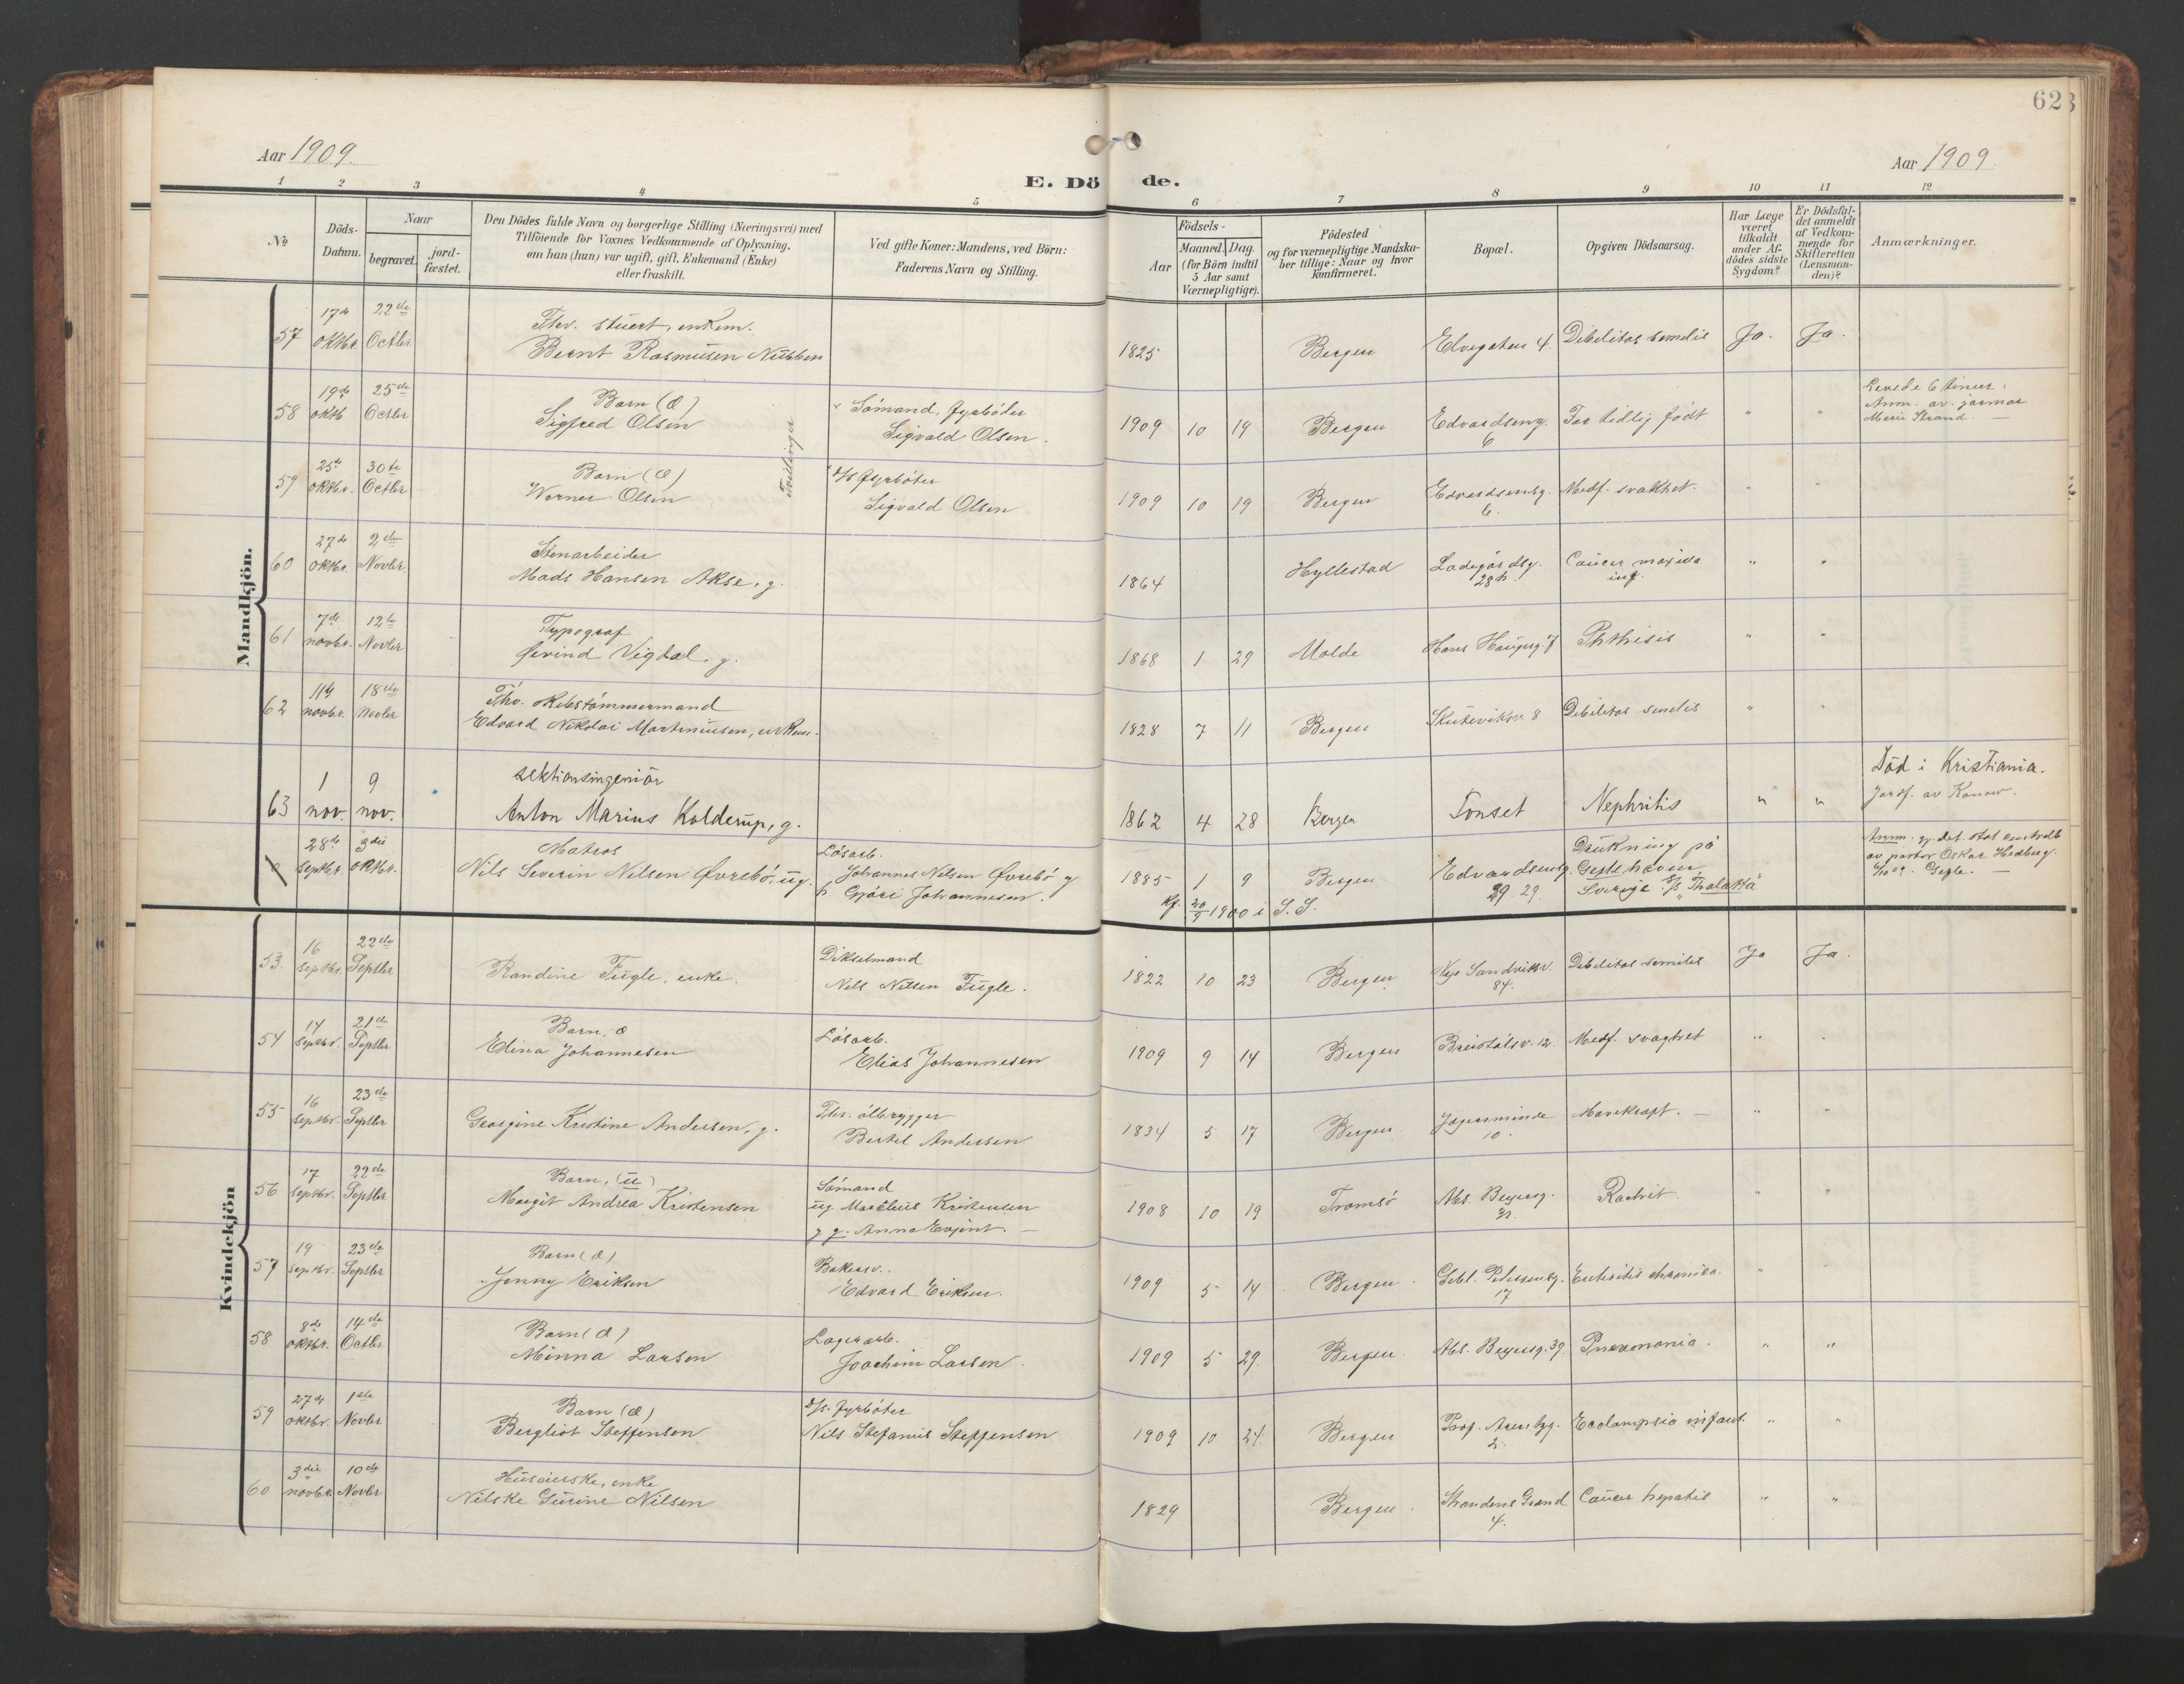 62
Aar 1909.
Aar 1909
E. Dö de.
1 2 3 4 5 6 7 8 9 10 11 12
No
Döds-
Datum.
Naar
begravet.
jord-
fæstet.
Den Dödes fulde Navn og borgerlige Stilling (Næringsvei) med
Tilföiende for Voxnes Vedkommende af Oplysning,
om han (hun) var ugift, gift, Enkemand (Enke)
eller fraskilt.
Ved gifte Koner: Mandens, ved Börn:
Faderens Navn og Stilling.
Födsels-
Aar
Maaned.
Dag.
(for Börn indtil
5 Aar samt
Værnepligtige).
Födested
og for værnepligtige Mandska-
ber tillige: Naar og hvor
konfirmeret.
Bopæl.
Opgiven Dödsaarsag.
Har Læge
været
tilkaldt
under Af-
dödes sidste
Sygdom?
Er Dödsfal-
det anmeldt
af Vedkom-
mende for
Skifteretten
(Lensman-
den)?
Anmærkninger.
Mandkjön.
57 17de oktbr. 22de Octbr
Fhv. stuert, enkem.
Bernt Rasmusen Nubben
1825 Bergen Elvegaten 4. Debilitas senilis Ja. Ja.
58 19de oktb 25de Octbr
Barn (Æ)
Sigfred Olsen
Sömand, fyrböder
Sigvald Olsen.
1909 10 19 Bergen Edvardsensg. 6 For tidlig födt " "
Levede 6 timer.
Anm. av jormor
Marie Strand. —
Tvillinger
59 25de oktbr. 30te Octbr
Barn (Æ)
Werner Olsen
D/s fyrböter
Sigvald Olsen
1909 10 19 Bergen Edvardsensg. 6. Medf. svakhet. " "
60 27de oktbr. 2den Novbr.
Stenarbeider
Mads Hansen Akse, g.
1864 Hyllestad Ladegårdsg. 28b. Cancer maxilla inf. " "
61 7de novbr. 12te Novbr
Typograf
Øivind Vigdal, g.
1868 1 29 Molde Hans Haugesg. 7 Phthisis " "
62 11te novbr. 18de Novbr
Fhv. skibstömmermand
Edvard Nikolai Martinusen, enkem.
1828 7 11 Bergen Skuteviksv. 8 Debilitas senilis " "
63 1 nov. 9 nov.
sektionsingeniör
Anton Marius Kolderup, g.
1862 4 28 Bergen Tonset Nephritis " "
Död i Kristiania.
Jordf. av Konow.
28de septbr. 3die oktbr.
Matros
Nils Severin Nilsen Øvrebö, ug.
Lösarb.
Johannes Nilsen Øvrebö g
h. Gjöri Johannesen.
1885 1 9 Bergen Edvardsensg. 29. 29.
Kf. 30/9 1900 i S. S.
Drukning på
Gefle havn,
Sverige. S/s "Thalatta"
av pastor Oskar Hedberg.
Gefle. —
Kvindekjön
53. 16 septbr. 22de Septbr.
Randine Fugle, enke.
Dikselmand
Nils Nilsen Fugle.
1822 10 23 Bergen Nye Sandviksv. 84. Debilitas senilis Ja Ja.
54 14 septbr. 21de Septbr.
Barn, Æ
Elina Johannesen
Lösarb.
Elias Johannesen
1909 9 14 Bergen Breistölsv. 12. Medf. svaghet " "
55 16 septbr. 23de Septbr
Georgine Kristine Andersen, g.
Fhv. ölbrygger
Bertel Andersen
1834 5 17 Bergen. Jægersminde 10. Mavekræft. — " "
56 17 septbr. 22de Septbr
Barn, (U)
Margit Andrea Kristensen
Sömand
ug. Marelius Kristensen
g g. Anna Evjent. —
1908 10 19 Tromsö Abs. Beyersg. Rachit. " "
57 19 septbr. 23de Septbr
Barn (Æ)
Jenny Eriksen
Bakersv.
Edvard Eriksen.
1909 5 14 Bergen. Gebl. Pedersensg. 17 Enteritis chronica. " "
58 8de oktbr. 14de Octbr.
Barn (Æ)
Minna Larsen
Lagerarb.
Joachim Larsen.
1909 5 29. Bergen. Abs. Beyersg. 39. Pneumonia. " "
59 27de oktbr. 1ste Novbr
Barn (Æ)
Bergliot Steffensen
D/s. fyrböter
Nils Stefanus Steffensen
1909 10 24. Bergen 2. Eclampsia infant. " "
60 3die novbr. 10de Novbr
Husaierske, enke
Nilske Gurine Nilsen
1829 Bergen. Strandens Grend 4. Cancer hepatis " "